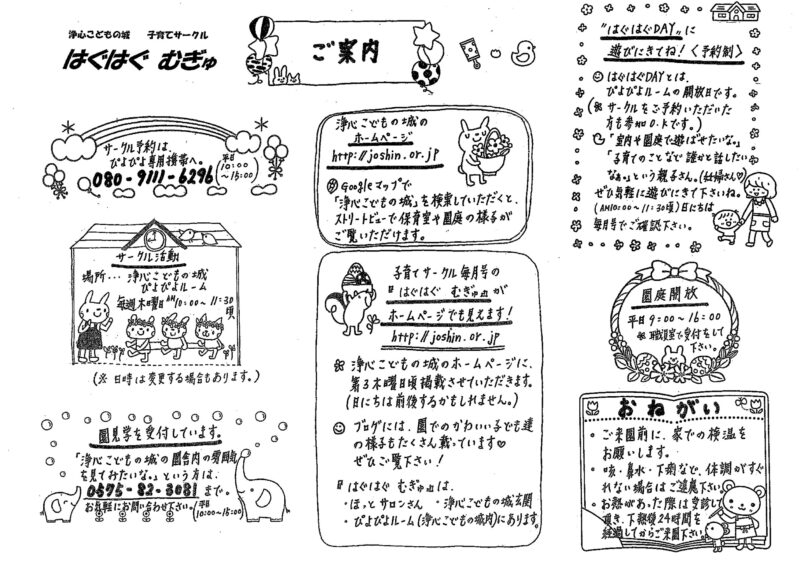 浄心こどもの城　子育てサークル
はぐはぐ むぎゅ
ご案内
サークル予約は、
ぴよぴよ専用携帯へ。
平日
10:00
〜15:00)
080-9111-6296
サークル活動
場所… 浄心こどもの城
ぴよぴよルーム
毎週木曜日 AM10:00〜11:30
頃
(※ 日時は変更する場合もあります。)
園見学を受付しています。
「浄心こどもの城の園舎内の雰囲気
を見てみたいな。」という方は、
0575-82-3081 まで。
お気軽にお問い合わせ下さい。
(平日
10:00〜15:00)
浄心こどもの城の
ホームページ
http://joshin.or.jp
Googleマップで
「浄心こどもの城」を検索していただくと、
ストリートビューで保育室や園庭の様子が
ご覧いただけます。
子育てサークル毎月号の
『はぐはぐ むぎゅ』が
ホームページでも見えます!
http://joshin.or.jp
浄心こどもの城のホームページに、
第3木曜日頃掲載させていただきます。
(日にちは前後するかもしれません。)
ブログには、園でのかわいい子ども達
の様子もたくさん載っています♡
ぜひご覧下さい!
『はぐはぐ むぎゅ』は、
・ほっとサロンさん ・浄心こどもの城玄関
・ぴよぴよルーム(浄心こどもの城内)にあります。
"はぐはぐDAY"に
遊びにきてね!〈予約制〉
はぐはぐDAYとは、
ぴよぴよルームの開放日です。
(※サークルをご予約いただいた
方も参加O.Kです。)
「室内や園庭で遊ばせたいな。」
「子育てのことなど誰かと話したい
なぁ。」という親子さん。(妊婦さん♡)
ぜひ気軽に遊びにきて下さいね。
(AM10:00〜11:30頃)日にちは
毎月号でご確認下さい。
園庭開放
平日9:00〜16:00
※職員室で受付をして
下さい。
おねがい
・ご来園前に、家での検温を
お願いします。
・咳・鼻水・下痢など、体調がすぐ
れない場合はご遠慮下さい。
・お熱があった際は受診して
頂き、下熱後24時間を
経過してからご来園下さい。